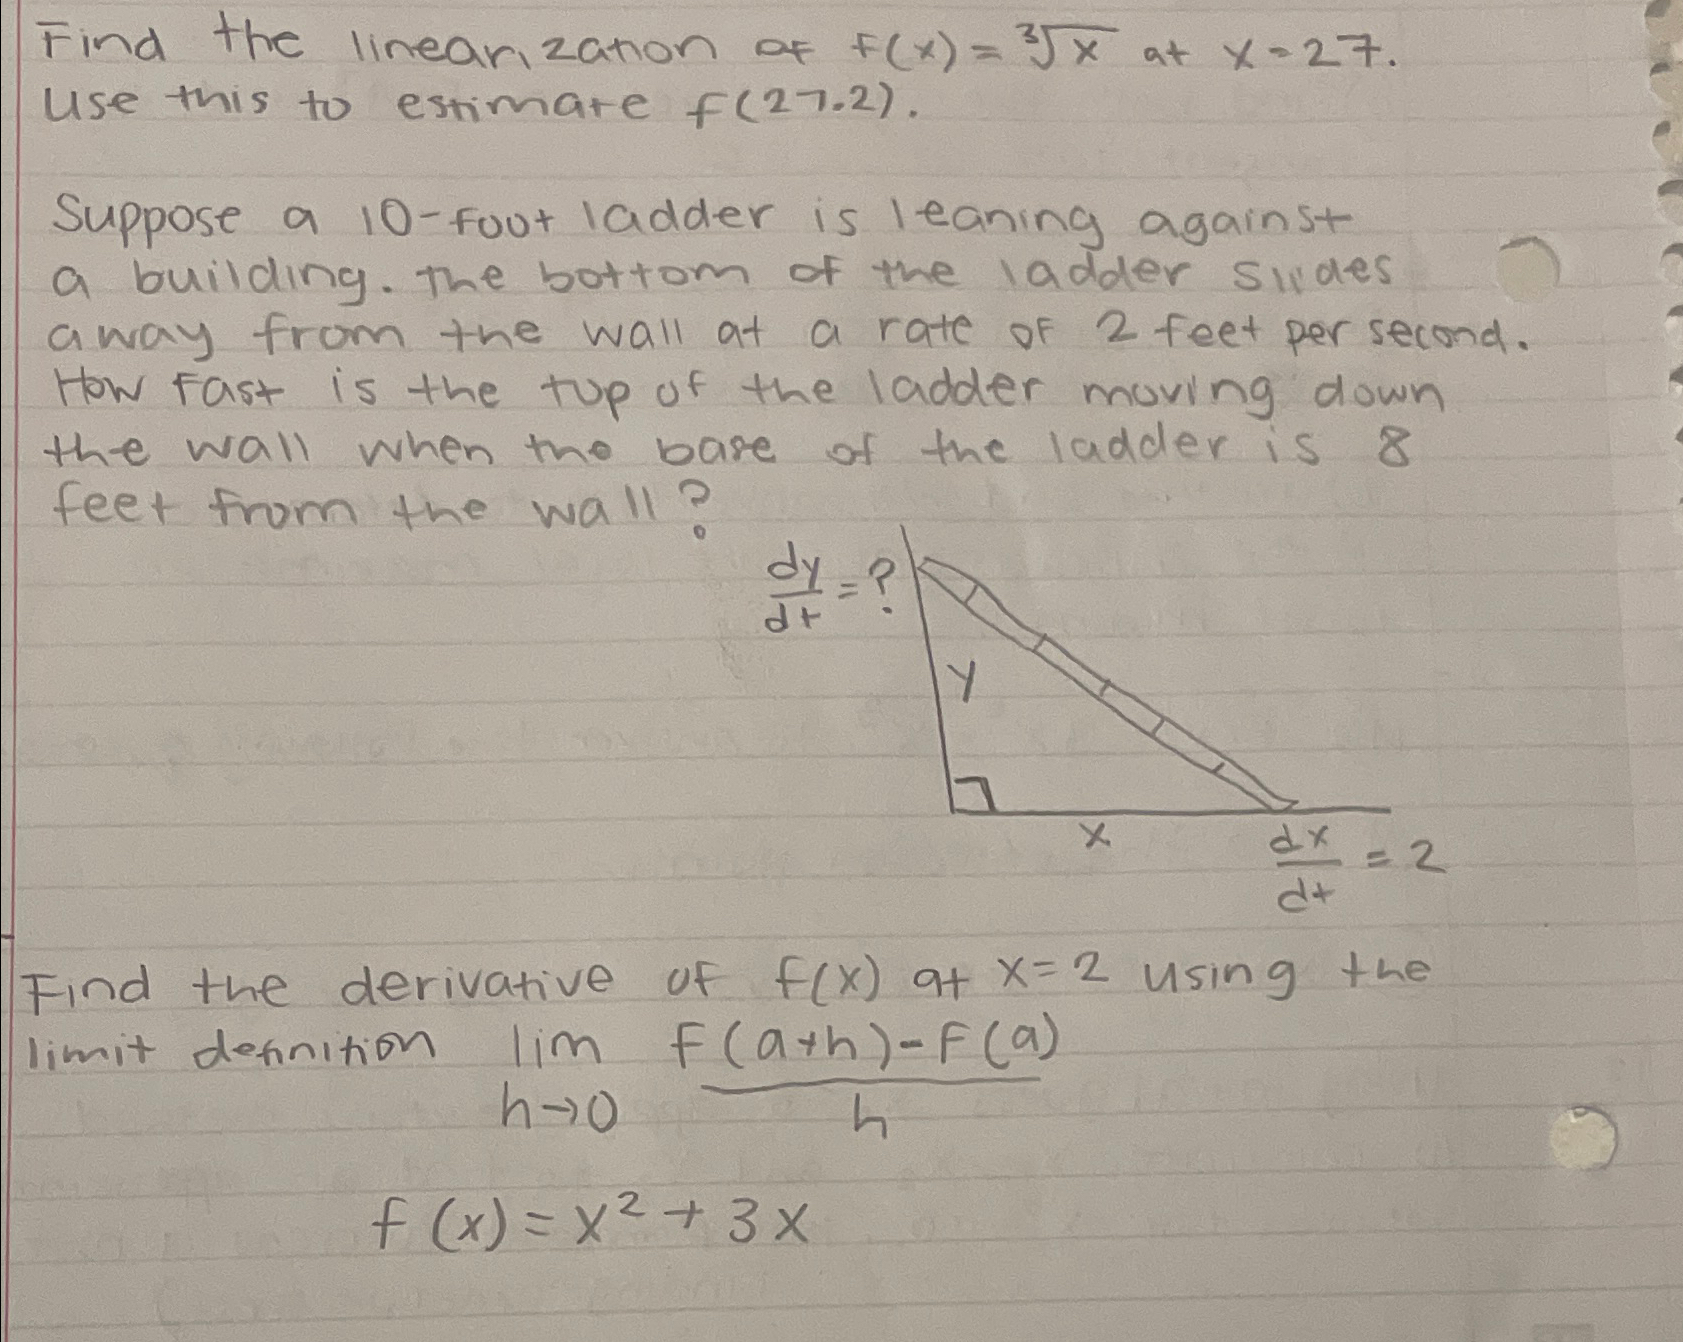 Find the linearization of f(x) = ∛x at x = 27.
Use this to estimate f(27.2).
Suppose a 10-foot ladder is leaning against
a building. The bottom of the ladder slides
away from the wall at a rate of 2 feet per second.
How fast is the top of the ladder moving down
the wall when the base of the ladder is 8
feet from the wall?
dy/dt = ?
y
x
dx/dt = 2
Find the derivative of f(x) at x = 2 using the
limit definition lim h→0 (f(a+h) - f(a))/h
f(x) = x² + 3x